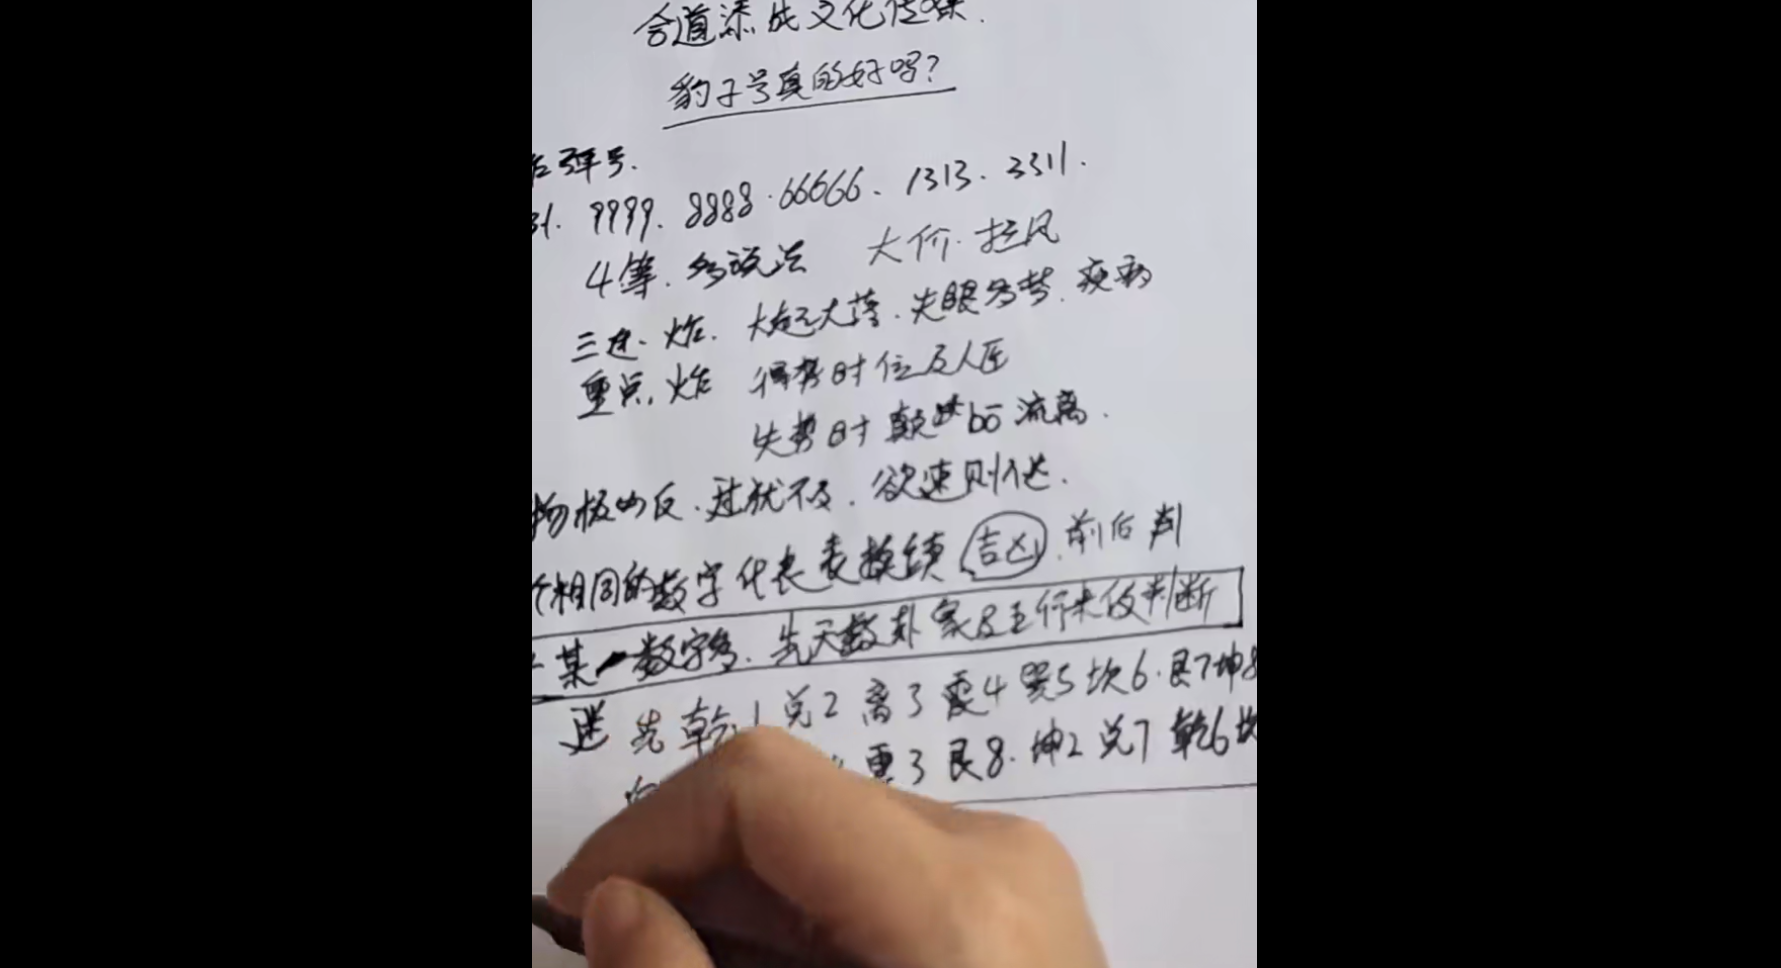 合道添成文化传媒.
豹子号真的好吗?
炸弹号.
31. 9999. 8888. 66666. 1313. 3311.
4等. 多说法 大价. 拉风
三连. 炸. 大起大落. 失眠多梦. 疾病
重点. 炸 得势时位及人臣
失势时颠沛 流离.
物极必反. 过犹不及. 欲速则不达.
个相同的数字代表 吉凶 前后判
某一数字多. 先天数卦象及五行来做判断
先乾1兑2离3震4巽5坎6.艮7坤8
震3艮8.坤2兑7乾6坎